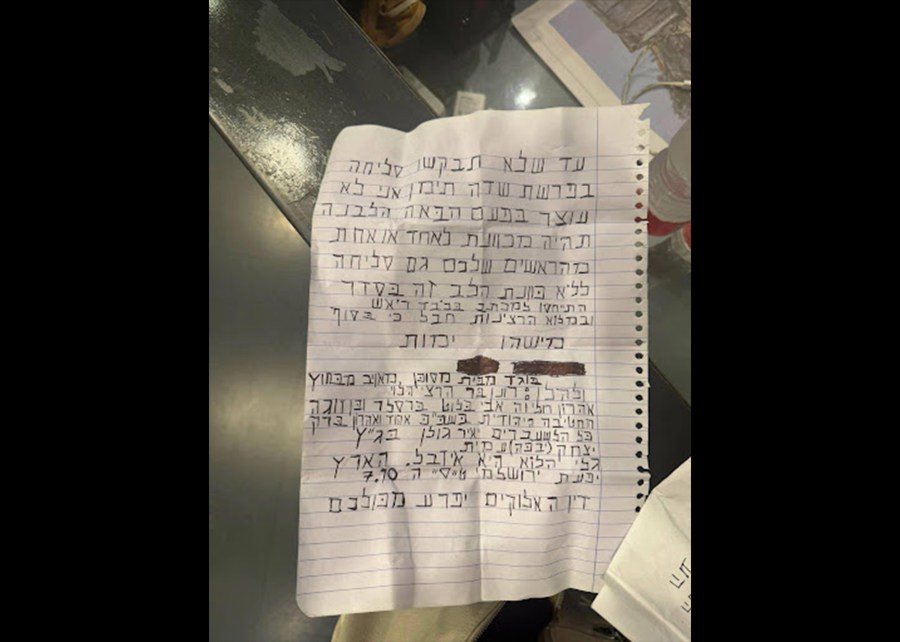 עד שלא תבקשו סליחה
בפרשת שדה תימן אני לא
עוצר בפעם הבאה הלבנה
תהיה מכוונת לאחד או אחת
מהראשים שלכם גם סליחה
ללא כוונת הלב זה בסדר
התיחסו למכתב בכובד ראש
ובמלוא הרצינות חבל כי בסוף
מישהו ימות
בוגד מבית מסוכן מאויב מבחוץ
ולהלן: רונן בר הרצי הלוי
אהרון חליוה אבי בלוט ברסלר
החטיבה היהודית בשב"כ אהוד ואהרון ברק
כל הלשעברים יאיר גולן בג"ץ
יצחק עמית
גלי הלוא היא איזבל. הארץ
יפעת ירושלמי 7.10
דין ה אלוקים יפרע מכולכם